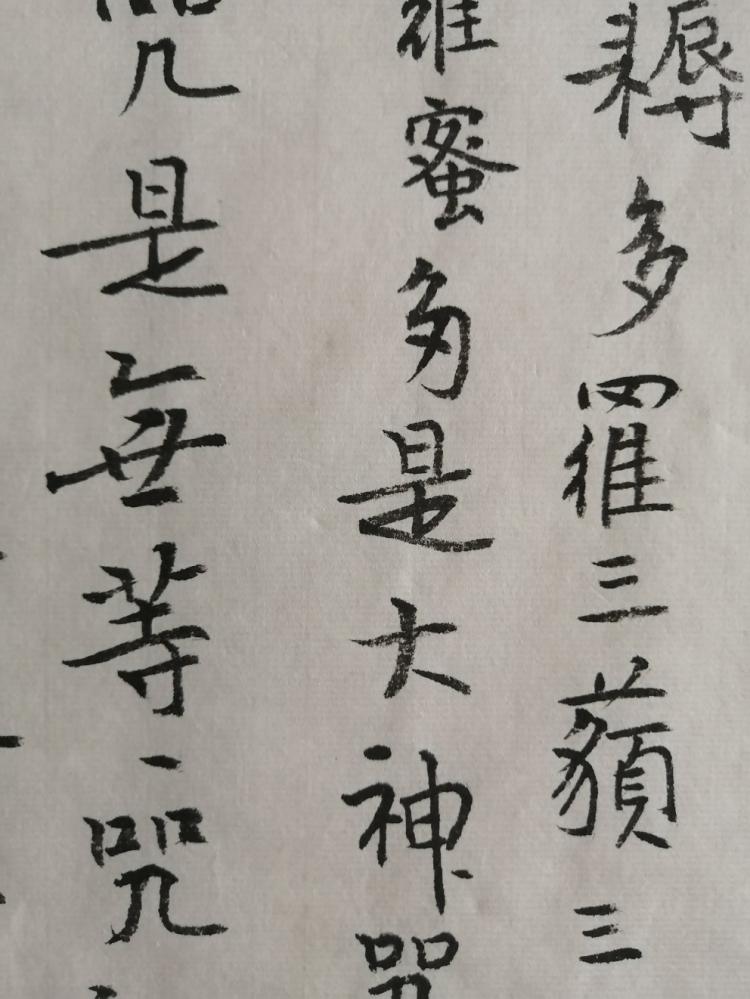 耨多羅三藐三
羅蜜多是大神咒
咒是無等等咒